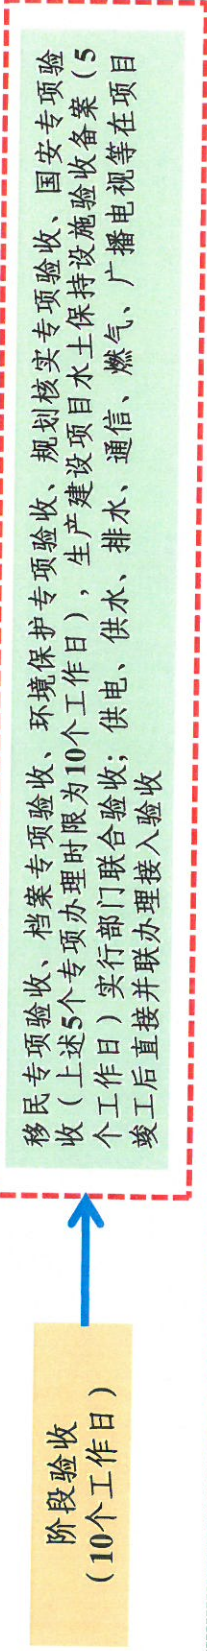 阶段验收
（10个工作日）
移民专项验收、档案专项验收、环境保护专项验收、规划核实专项验收、国安专项验
收（上述5个专项办理时限为10个工作日），生产建设项目水土保持设施验收备案（5
个工作日）实行部门联合验收；供电、供水、排水、通信、燃气、广播电视等在项目
竣工后直接并联办理接入验收